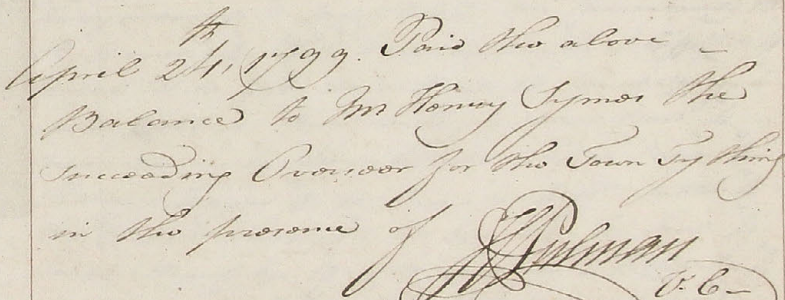 April 24th, 1799. Paid the above -
Balance to Mr Henry Symes the
succeeding Overseer for the Town Tything
in the presence of
Pulman
V. C -